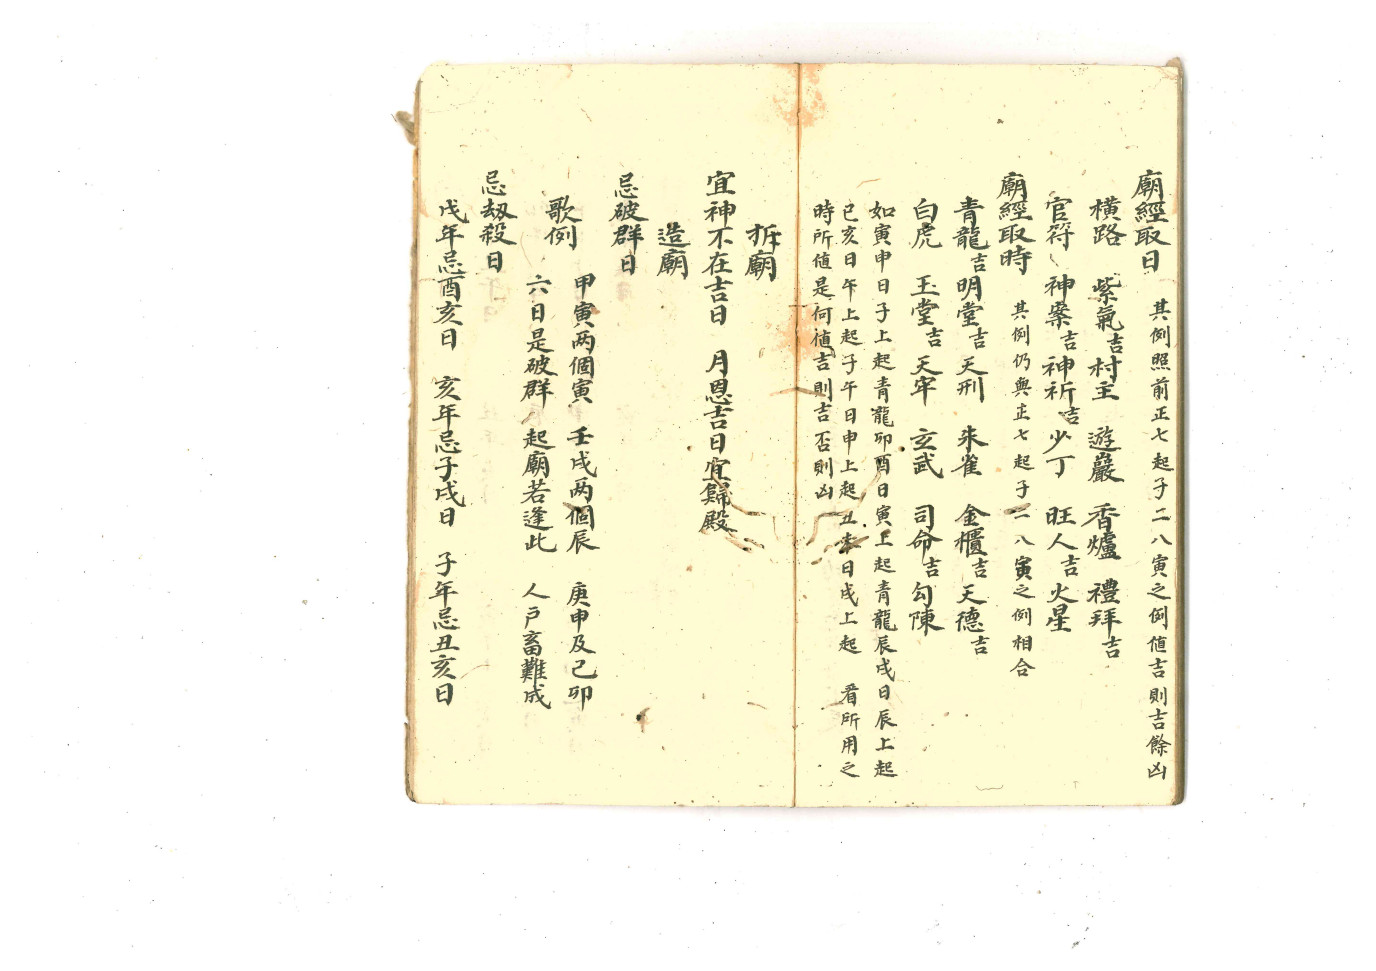 廟經取日　其例照前正七起子二八寅之例值吉則吉餘凶
橫路　紫氣吉村主　遊巖　香爐　禮拜吉
官符　神案吉神祈吉少丁　旺人吉火星
廟經取時　其例仍與正七起子二八寅之例相合
青龍吉明堂吉天刑　朱雀　金櫃吉天德吉
白虎　玉堂吉天牢　玄武　司命吉勾陳
如寅申日子上起青龍卯酉日寅上起青龍辰戌日辰上起
巳亥日午上起子午日申上起丑未日戌上起　看所用之
時所值是何值吉則吉否則凶
拆廟
宜神不在吉日　月恩吉日宜歸殿
造廟
忌破群日
歌例　甲寅两個寅　壬戌两個辰　庚申及己卯
六日是破群　起廟若逢此　人戶畜難成
忌刼殺日
戊年忌酉亥日　亥年忌子戌日　子年忌丑亥日